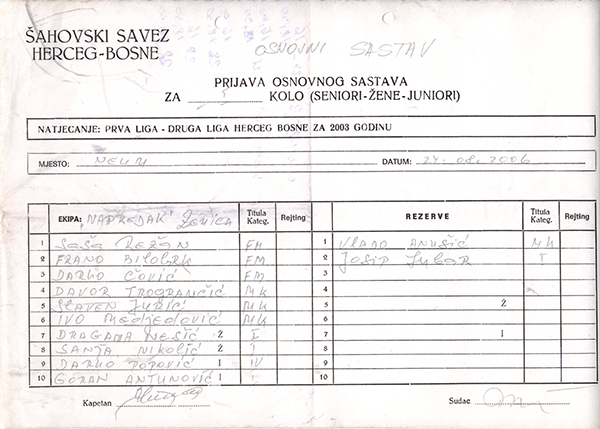 ŠAHOVSKI SAVEZ
HERCEG-BOSNE
OSNOVNI SASTAV
PRIJAVA OSNOVNOG SASTAVA
ZA 5 KOLO (SENIORI-ŽENE-JUNIORI)
NATJECANJE: PRVA LIGA - DRUGA LIGA HERCEG BOSNE ZA 2003 GODINU
MJESTO: NEUM DATUM: 24. 08. 2006
EKIPA: "NAPREDAK" Zenica Titula Kateg. Rejting REZERVE Titula Kateg. Rejting
1 Saša Režan FM 1 Vlado Anušić MK
2 FRANO BILOBRK FM 2 Josip I
3 DARKO ČOVIĆ FM 3
4 DAVOR TROGRANČIĆ MK 4
5 SLAVEN JURIĆ MK 5 Ž
6 IVO Medjedović MK 6
7 DRAGANA NEŠIĆ Ž I 7 J
8 SANJA NIKOLIĆ Ž I 8
9 DARKO POPOVIĆ J IV 9
10 GORAN ANTUNOVIĆ J I 10
Kapetan Sudac